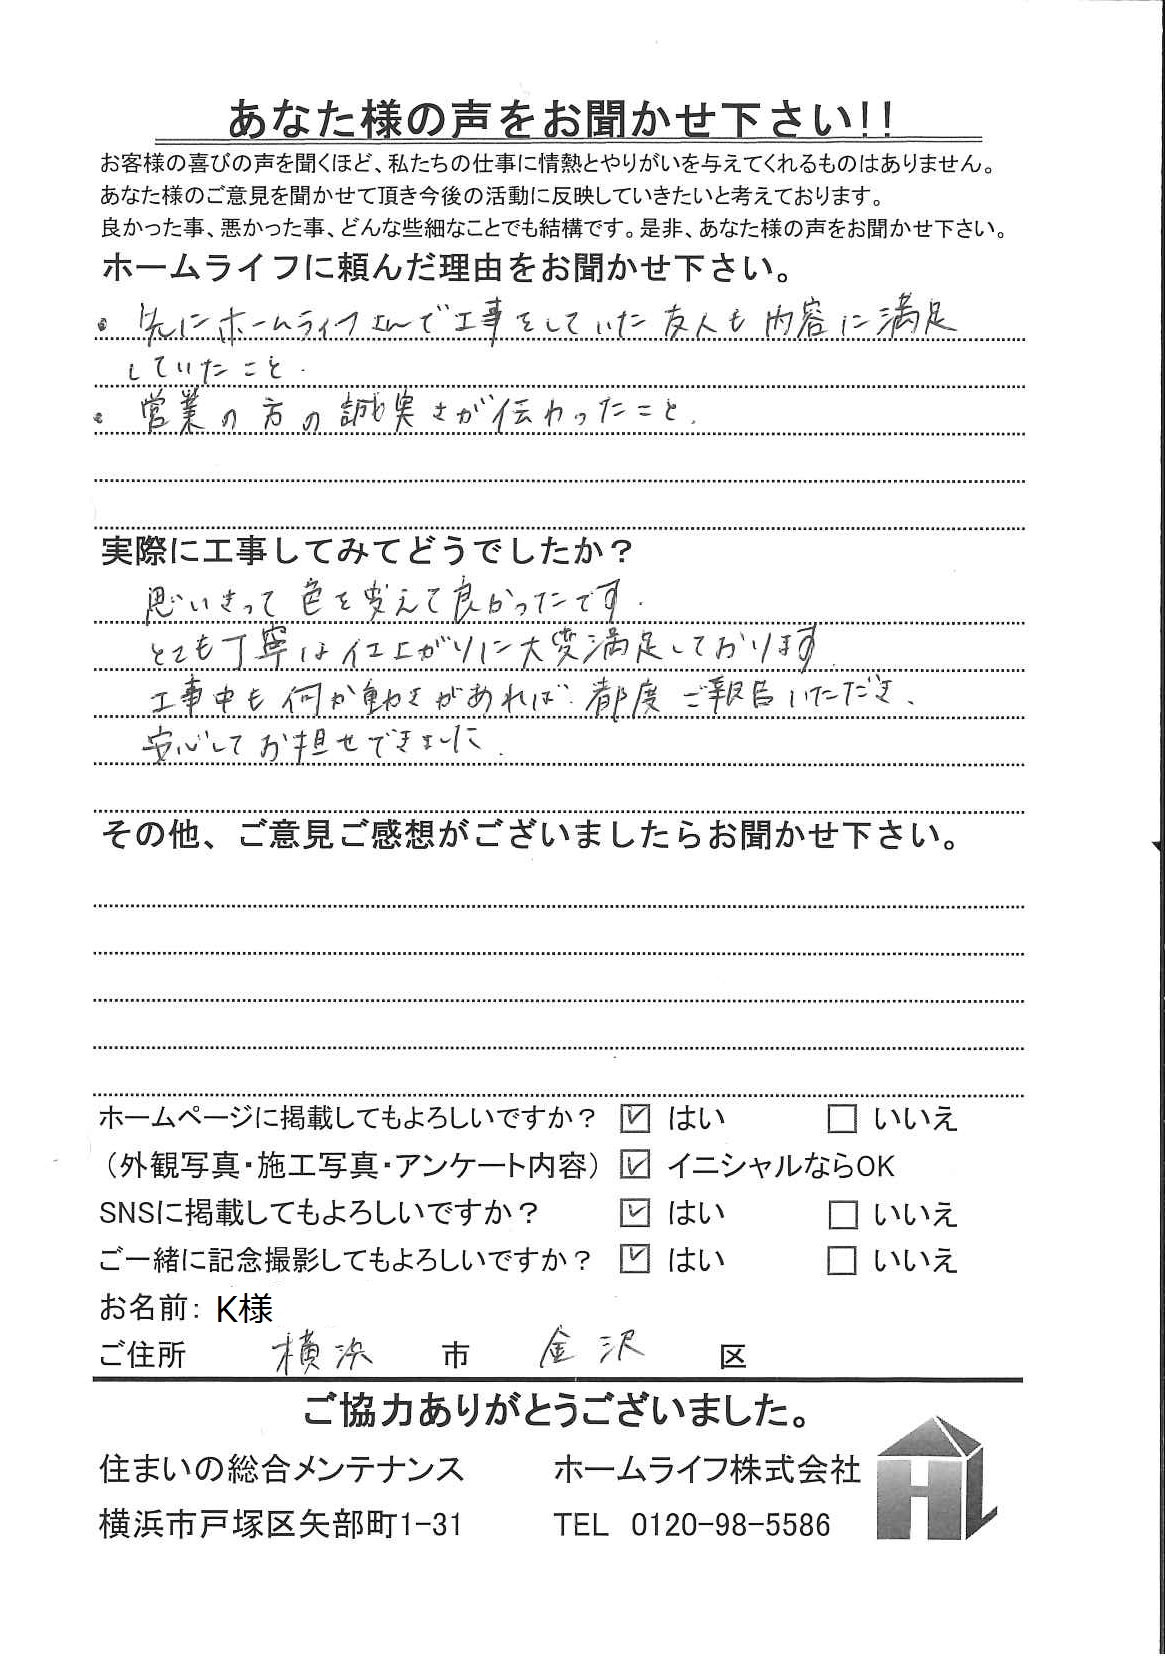 あなた様の声をお聞かせ下さい!!
お客様の喜びの声を聞くほど、私たちの仕事に情熱とやりがいを与えてくれるものはありません。
あなた様のご意見を聞かせて頂き今後の活動に反映していきたいと考えております。
良かった事、悪かった事、どんな些細なことでも結構です。是非、あなた様の声をお聞かせ下さい。
ホームライフに頼んだ理由をお聞かせ下さい。
• 先にホームライフさんで工事をしていた友人も内容に満足
していたこと.
• 営業の方の誠実さが伝わったこと.
実際に工事してみてどうでしたか？
思いきって色を変えて良かったです.
とても丁寧な仕上がりに大変満足しております.
工事中も何か動きがあれば都度ご報告いただき、
安心してお任せできました.
その他、ご意見ご感想がございましたらお聞かせ下さい。
ホームページに掲載してもよろしいですか？ ☑ はい □ いいえ
（外観写真・施工写真・アンケート内容） ☑ イニシャルならOK
SNSに掲載してもよろしいですか？ ☑ はい □ いいえ
ご一緒に記念撮影してもよろしいですか？ ☑ はい □ いいえ
お名前: K様
ご住所 横浜 市 金沢 区
ご協力ありがとうございました。
住まいの総合メンテナンス ホームライフ株式会社
横浜市戸塚区矢部町1-31 TEL 0120-98-5586
HL